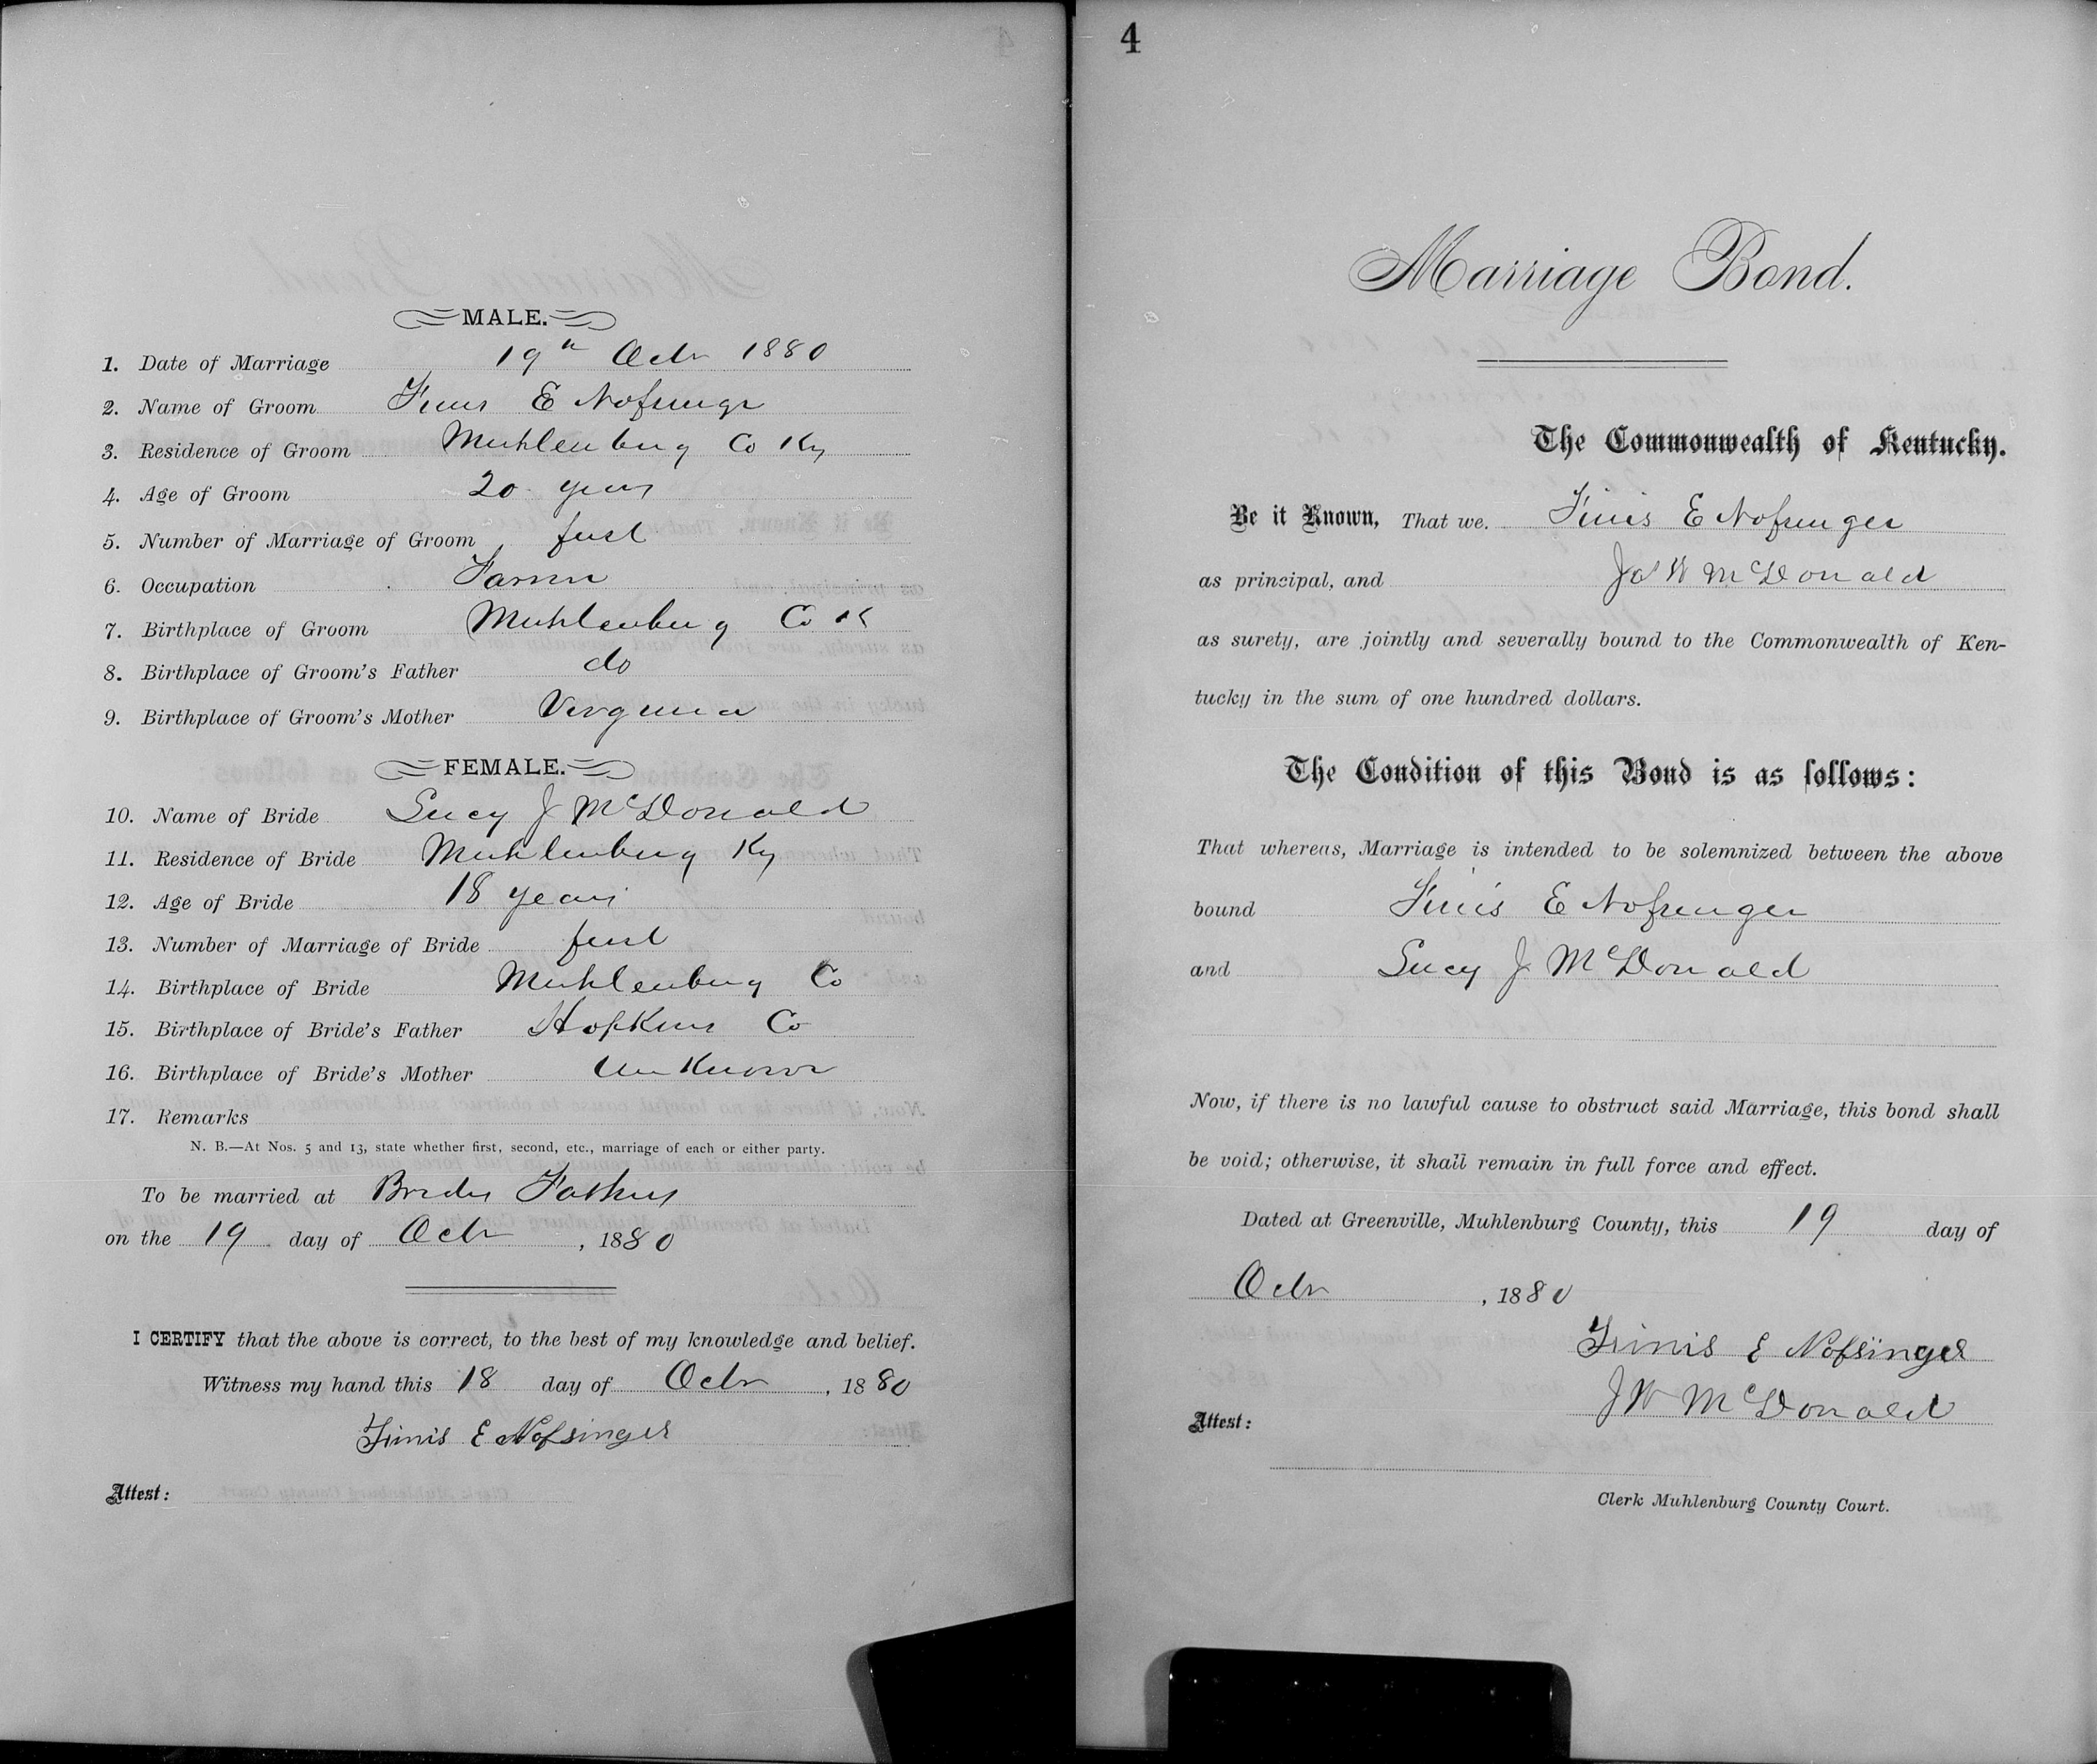 MALE.
1. Date of Marriage 19th Octr 1880
2. Name of Groom Finis E Nofsinger
3. Residence of Groom Muhlenburg Co Ky
4. Age of Groom 20 years
5. Number of Marriage of Groom first
6. Occupation Farmer
7. Birthplace of Groom Muhlenburg Co K
8. Birthplace of Groom's Father do
9. Birthplace of Groom's Mother Virginia
FEMALE.
10. Name of Bride Lucy J McDonald
11. Residence of Bride Muhlenburg Ky
12. Age of Bride 18 years
13. Number of Marriage of Bride first
14. Birthplace of Bride Muhlenburg Co
15. Birthplace of Bride's Father Hopkins Co
16. Birthplace of Bride's Mother Unknown
17. Remarks
N. B.—At Nos. 5 and 13, state whether first, second, etc., marriage of each or either party.
To be married at Brides Fathers
on the 19 day of Octr, 1880
I CERTIFY that the above is correct, to the best of my knowledge and belief.
Witness my hand this 18 day of Octr, 1880
Finis E Nofsinger
Attest:
4
Marriage Bond.
The Commonwealth of Kentucky.
Be it Known, That we. Finis E Nofsinger
as principal, and J W McDonald
as surety, are jointly and severally bound to the Commonwealth of Ken-
tucky in the sum of one hundred dollars.
The Condition of this Bond is as follows:
That whereas, Marriage is intended to be solemnized between the above
bound Finis E Nofsinger
and Lucy J McDonald
Now, if there is no lawful cause to obstruct said Marriage, this bond shall
be void; otherwise, it shall remain in full force and effect.
Dated at Greenville, Muhlenburg County, this 19 day of
Octr, 1880
Finis E Nofsinger
J W McDonald
Attest:
Clerk Muhlenburg County Court.